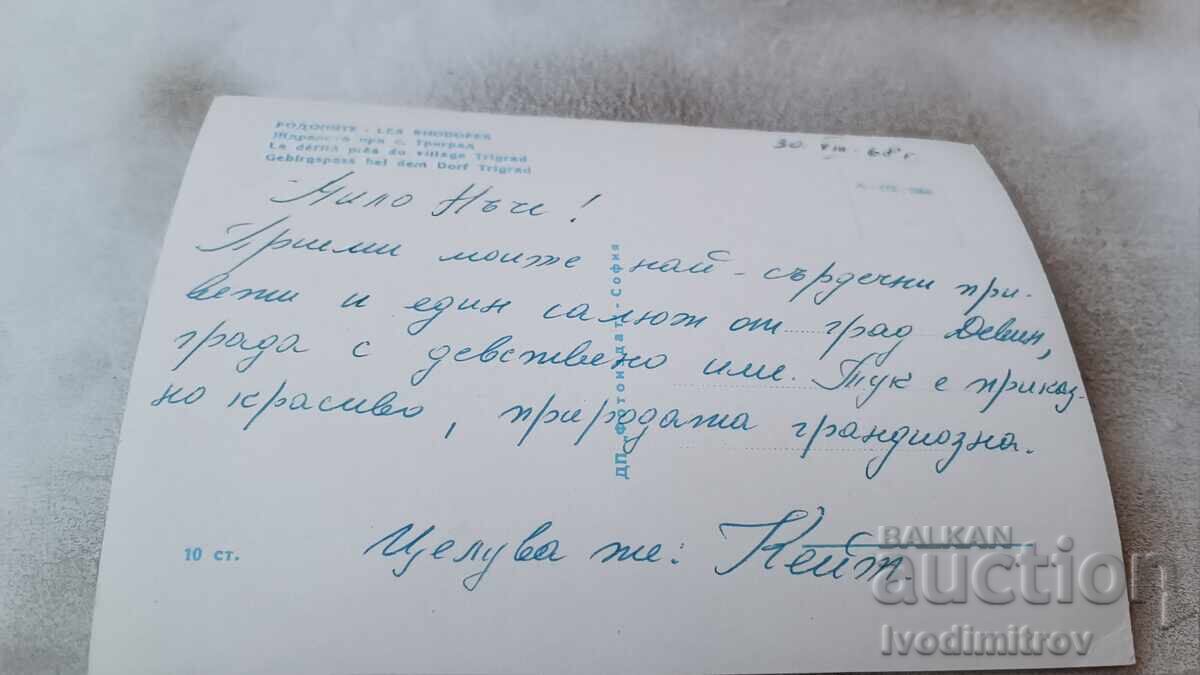 РОДОПИТЕ - LES RHODOPES
Ждрелото при с. Триград
Le défilé près du village Trigrad
Gebirgspass bei dem Dorf Trigrad
30. VIII. 68 г.
Мило Нъче!
Приеми моите най-сърдечни при-
вети и един салют от град Девин,
града с девствено име. Тук е приказ-
но красиво, природата грандиозна.
Целува те: Кейт.
ДП „Фотоиздат" - София
10 ст.
BALKAN
auction
Ivodimitrov